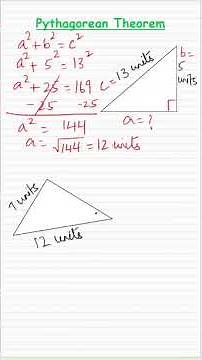 Pythagorean Theorem
a² + b² = c²
a² + 5² = 13²
a² + 25 = 169
- 25 -25
a² = 144
a = √144 = 12 units
c = 13 units
b =
5
units
a = ?
7 units
12 units